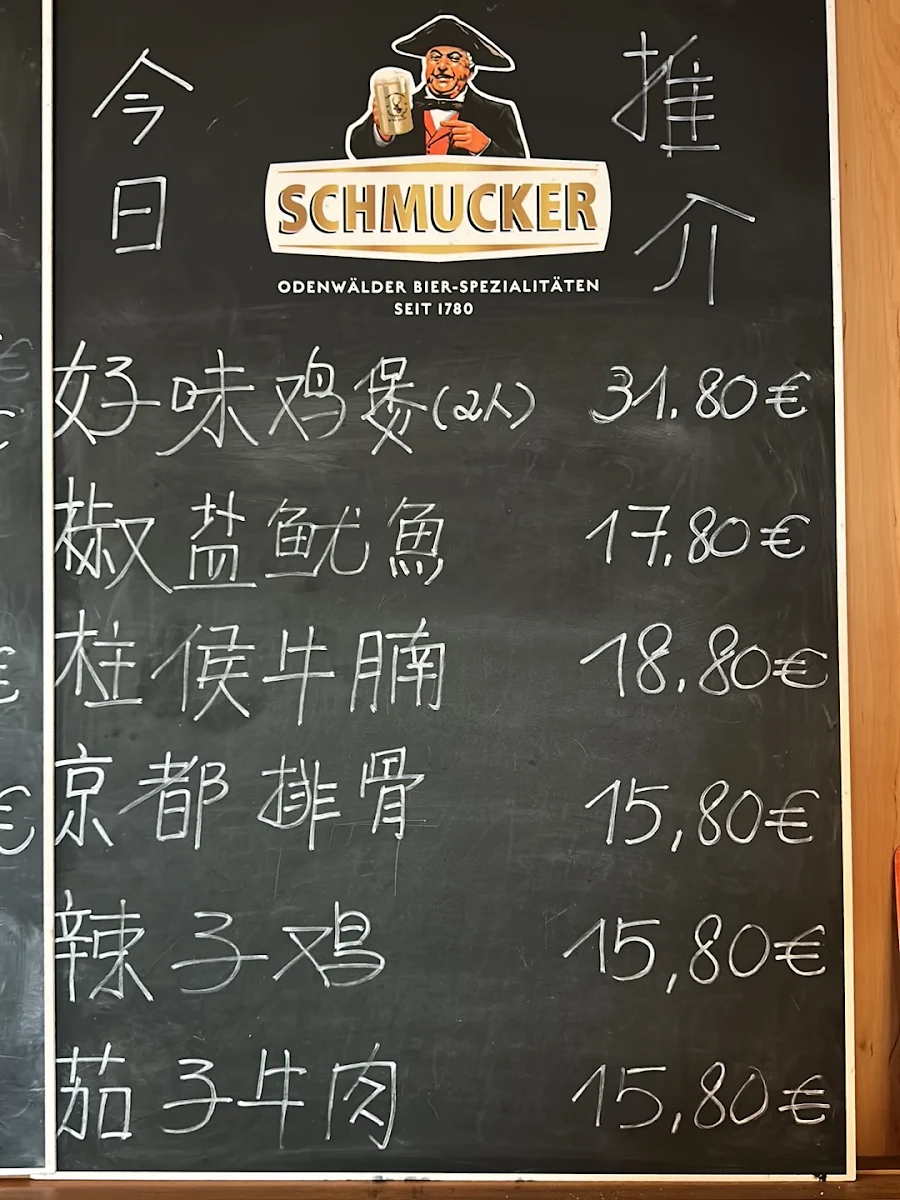 今日
推介
SCHMUCKER
ODENWÄLDER BIER-SPEZIALITÄTEN
SEIT 1780
好味鸡煲(2人) 31.80€
椒盐鱿魚 17.80€
柱侯牛腩 18.80€
京都排骨 15,80€
辣子鸡 15,80€
茄子牛肉 15,80€
€
€
€
€